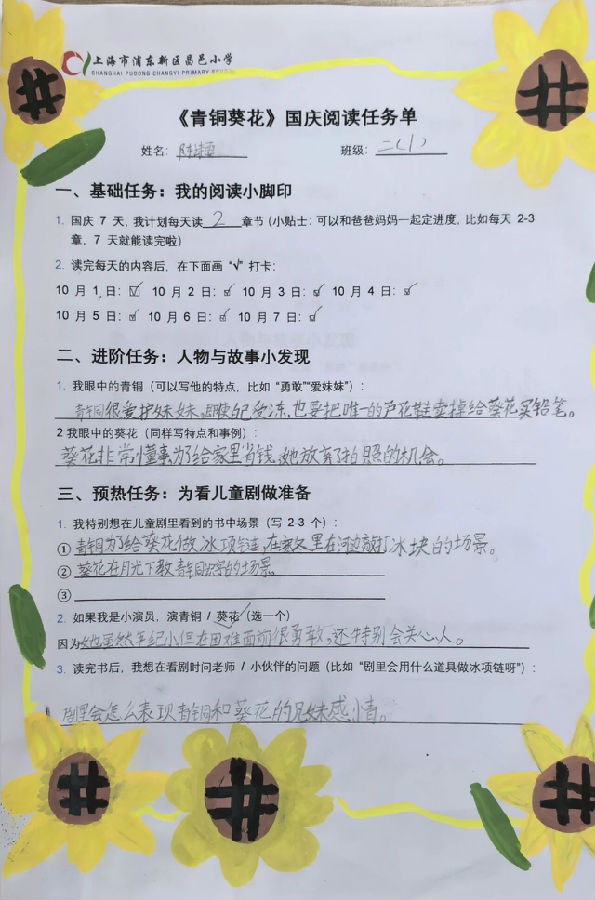 上海市浦东新区昌邑小学
SHANGHAI PUDONG CHANGYI PRIMARY SCHOOL
《青铜葵花》国庆阅读任务单
姓名: 班级: 二(1)
一、基础任务：我的阅读小脚印
1. 国庆 7 天，我计划每天读 2 章节 (小贴士：可以和爸爸妈妈一起定进度，比如每天 2-3
章，7 天就能读完啦)
2. 读完每天的内容后，在下面画 "√" 打卡：
10 月 1 日：☑ 10 月 2 日：☑ 10 月 3 日：☑ 10 月 4 日：☑
10 月 5 日：☑ 10 月 6 日：☑ 10 月 7 日：☑
二、进阶任务：人物与故事小发现
1. 我眼中的青铜（可以写他的特点，比如 "勇敢""爱妹妹"）：
青铜很爱护妹妹,即使自己受冻,也要把唯一的芦花鞋卖掉给葵花买铅笔。
2 我眼中的葵花（同样写特点和事例）：
葵花非常懂事,为了给家里省钱,她放弃了拍照的机会。
三、预热任务：为看儿童剧做准备
1. 我特别想在儿童剧里看到的书中场景（写 2 3 个）：
① 青铜为了给葵花做冰项链,在寒夜里在河边敲打冰块的场景。
② 葵花在月光下教青铜识字的场景
③
2. 如果我是小演员，演青铜 / 葵花√(选一个)
因为她虽然年纪小,但在困难面前很勇敢,还特别会关心人。
3. 读完书后，我想在看剧时问老师 / 小伙伴的问题（比如 "剧里会用什么道具做冰项链呀"）：
剧里会怎么表现青铜和葵花的兄妹感情。